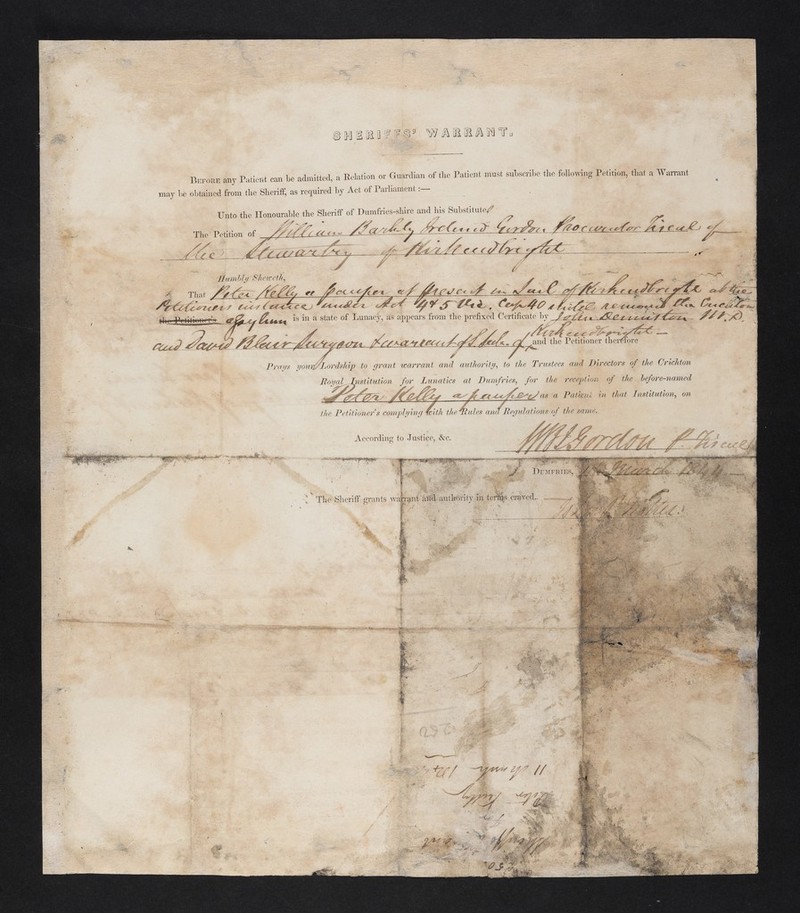 SHERIFFS' WARRANT.
BEFORE any Patient can be admitted, a Relation or Guardian of the Patient must subscribe the following Petition, that a Warrant
may be obtained from the Sheriff, as required by Act of Parliament :—
Unto the Honourable the Sheriff of Dumfries-shire and his Substitute
The Petition of William Gordon Procurator Fiscal of
the Stewartry of Kirkcudbright
Humbly Sheweth,
That Peter Kelly a pauper at present in Jail of Kirkcudbright at the
Petitioners instance under Act 4 & 5 Vic. Cap 40 until removed to a
the Petitioner's Asylum is in a state of Lunacy, as appears from the prefixed Certificate by John M.D
and David Blair Surgeon & warrant of Kirkcudbright — and the Petitioner therefore
Prays your Lordship to grant warrant and authority, to the Trustees and Directors of the Crichton
Royal Institution for Lunatics at Dumfries, for the reception of the before-named
Peter Kelly a pauper as a Patient in that Institution, on
the Petitioner's complying with the Rules and Regulations of the same.
According to Justice, &c.
Gordon P. Fiscal
DUMFRIES, March 1844
The Sheriff grants warrant and authority in terms craved.
11 March
Peter Kelly